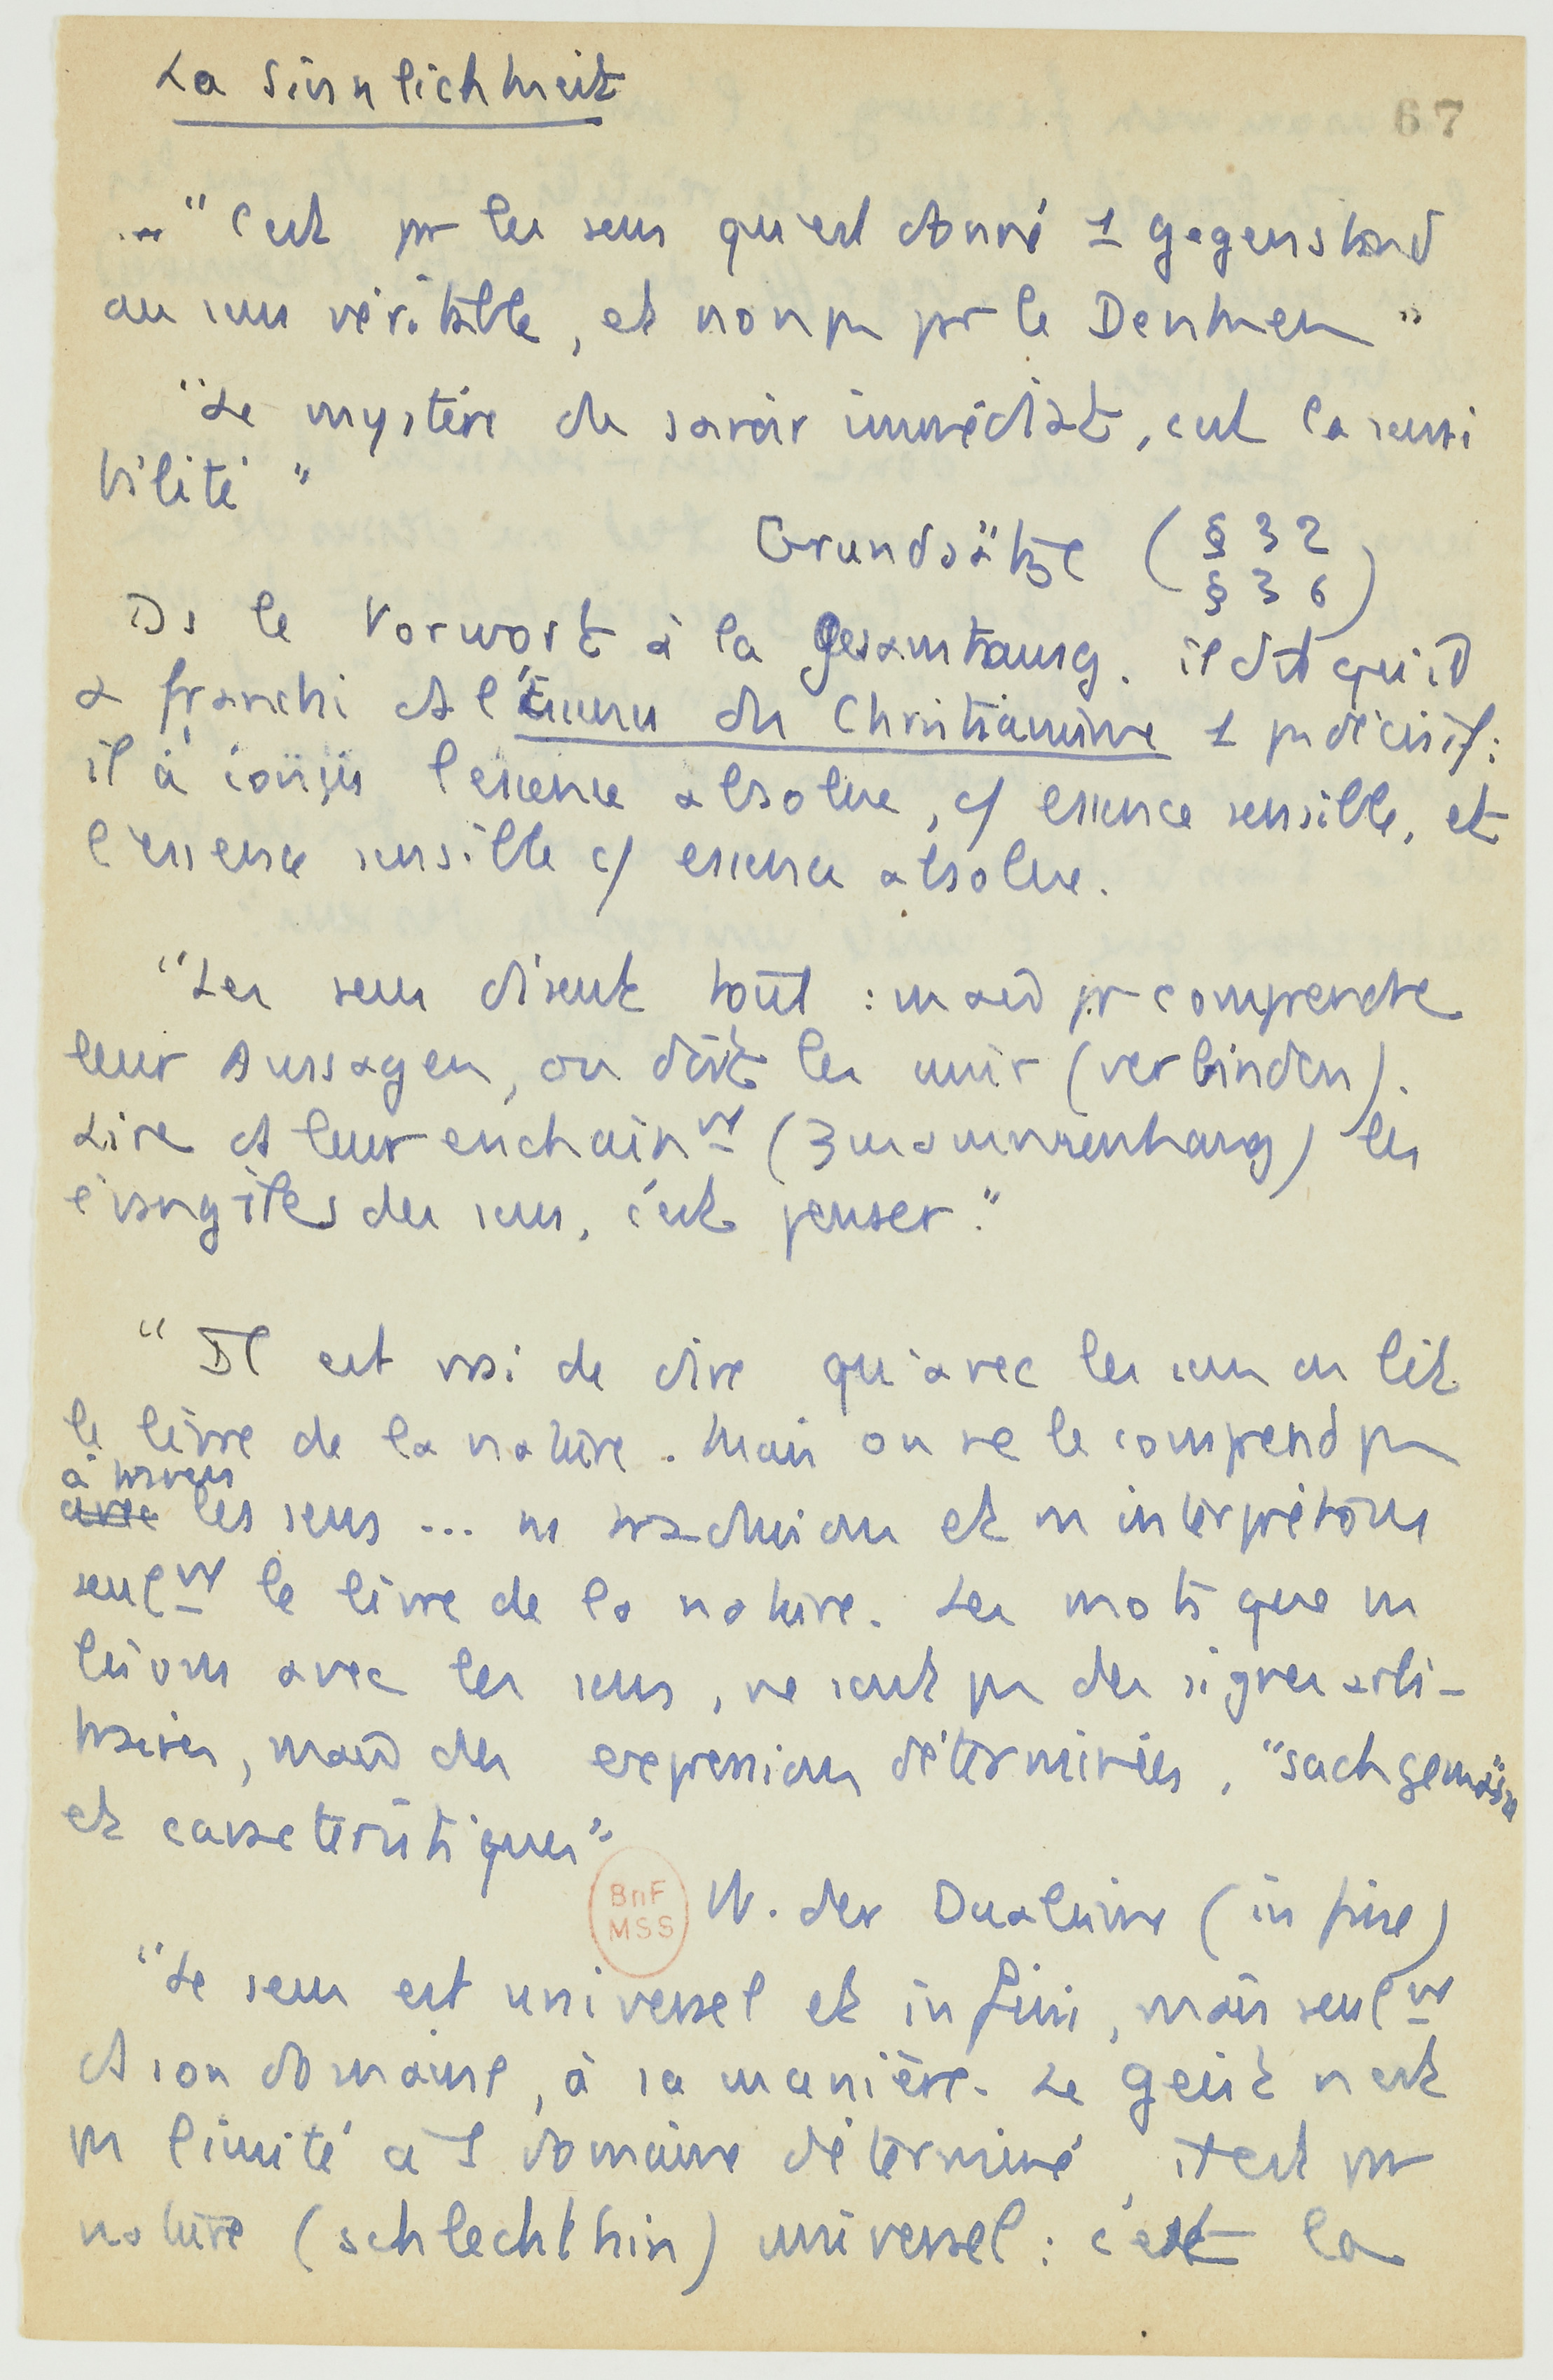 La Sinnlichkeit
67
... "C'est pr les sens qu'est donné 1 Gegenstand
au sens véritable, et non ps pr le Denken"
"Le mystère du savoir immédiat, c'est la sensi
bilité"
Grundsätze (§ 32
§ 36)
Ds le Vorwort à la Gesamtausg. il dit qu'il
a franchi ds l'Essence du Christianisme 1 ps décisif:
il a conçu l'essence absolue, c/ essence sensible, et
l'essence sensible c/ essence absolue.
"Les sens disent tout : mais pr comprendre
leur Aussagen, on doit les unir (verbinden).
Lire ds leur enchainmt (Zusammenhang) les
évangiles des sens, c'est penser."
"Il est vrai de dire qu'avec les sens on lit
le livre de la nature. Mais on ne le comprend ps
à travers
avec les sens ... ns traduisons et ns interprétons
seulmt le livre de la nature. Les mots que ns
lisons avec les sens, ne sont ps des signes arbi-
traires, mais des expressions déterminées, "sachgemässn
et caractéristiques"
BnF
MSS
W. der Dualisme (in fine)
"Le sens est universel et infini, mais seulmt
ds son domaine, à sa manière. Le Geist n'est
ps limité à 1 domaine déterminé, il est par
nature (schlechthin) universel : c'est la